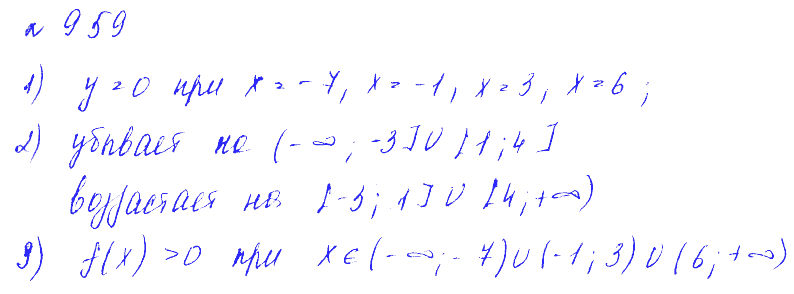 № 959
1) y = 0 при x = -7, x = -1, x = 3, x = 6;
2) убывает на (-∞; -3] ∪ [1; 4]
возрастает на [-3; 1] ∪ [4; +∞)
3) f(x) > 0 при x ∈ (-∞; -7) ∪ (-1; 3) ∪ (6; +∞)